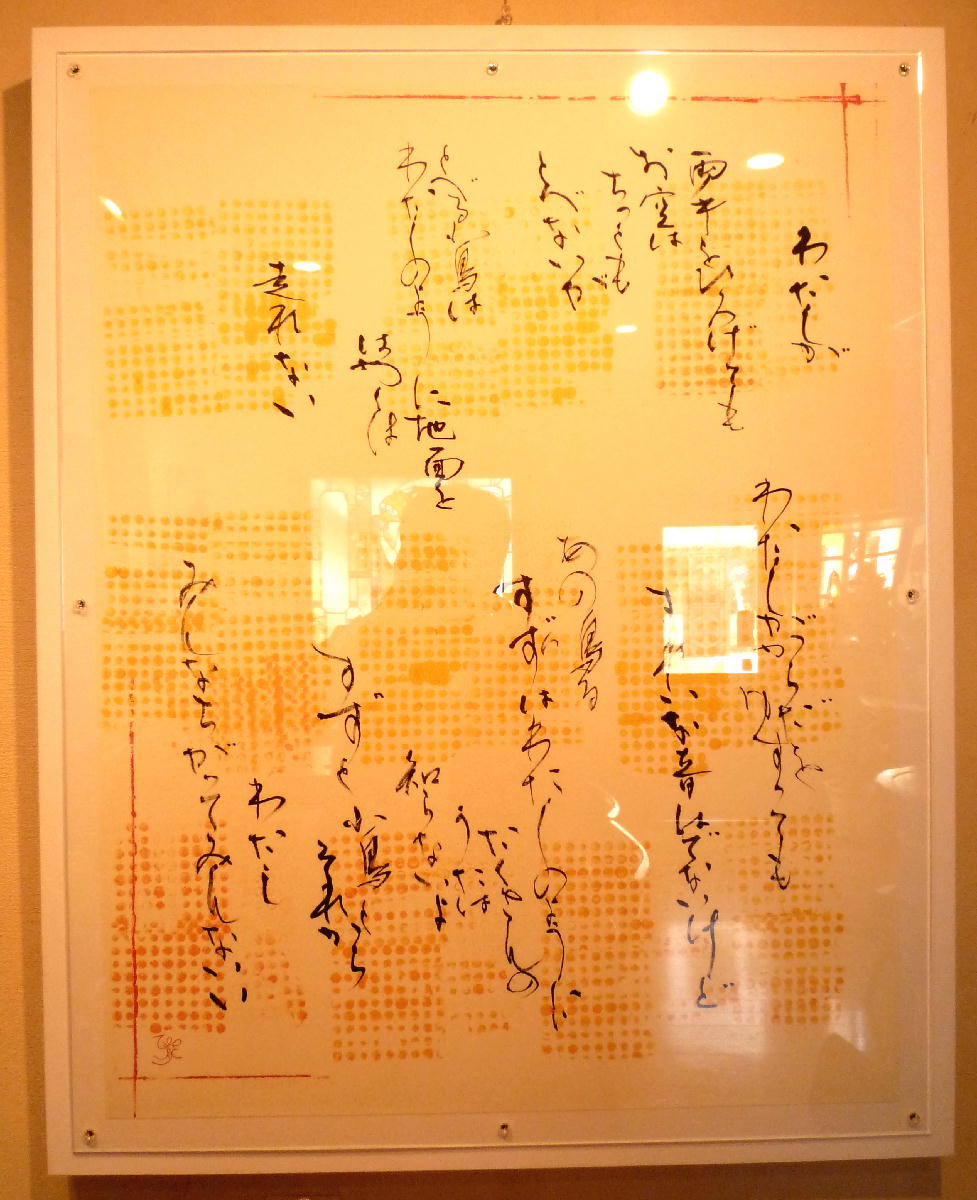 わたしが
両手をひろげても
お空は
ちっとも
とべないが
とべる小鳥は
わたしのように地面を
はやくは
走れない
わたしがからだを
ゆすっても
きれいな音はでないけど
あの鳴る
すずはわたしのように
たくさんの
うたは
知らないよ
すずと小鳥と
それから
わたし
みんなちがってみんないい